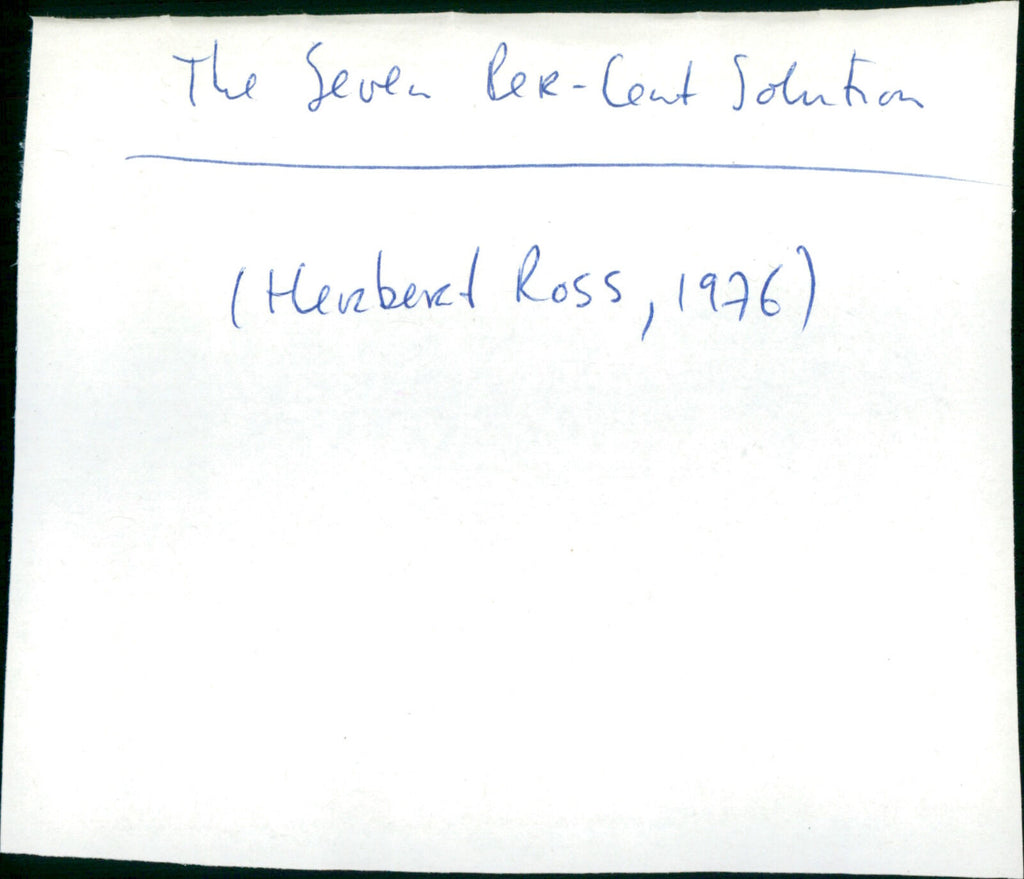 The Seven Per-Cent Solution
(Herbert Ross, 1976)